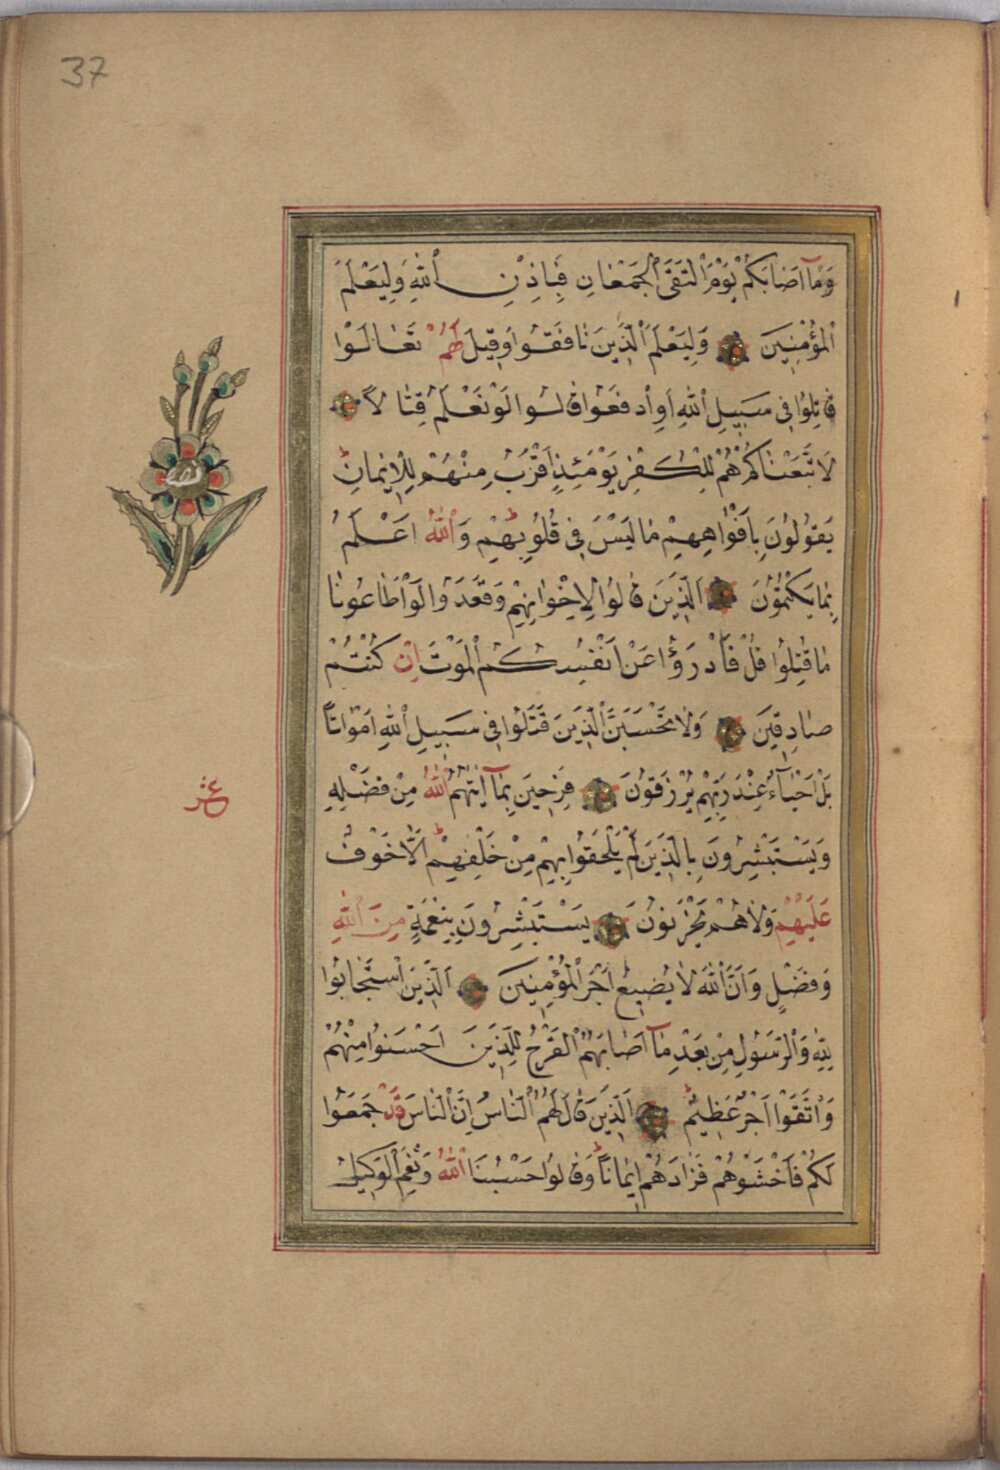 37
وَمَٓا اَصَابَكُمْ يَوْمَ الْتَقَى الْجَمْعَانِ فَبِاِذْنِ اللّٰهِ وَلِيَعْلَمَ
الْمُؤْمِنِينَ وَلِيَعْلَمَ الَّذِينَ نَافَقُوا وَقِيلَ لَهُمْ تَعَالَوْا
قَاتِلُوا فِى سَبِيلِ اللّٰهِ اَوِ ادْفَعُوا قَالُوا لَوْ نَعْلَمُ قِتَالًا
لَاتَّبَعْنَاكُمْ هُمْ لِلْكُفْرِ يَوْمَئِذٍ اَقْرَبُ مِنْهُمْ لِلْاِيمَانِ
يَقُولُونَ بِاَفْوَاهِهِمْ مَا لَيْسَ فِى قُلُوبِهِمْ وَاللّٰهُ اَعْلَمُ
بِمَا يَكْتُمُونَ اَلَّذِينَ قَالُوا لِاِخْوَانِهِمْ وَقَعَدُوا لَوْ اَطَاعُونَا
مَا قُتِلُوا قُلْ فَادْرَؤُا عَنْ اَنْفُسِكُمُ الْمَوْتَ اِنْ كُنْتُمْ
صَادِقِينَ وَلَا تَحْسَبَنَّ الَّذِينَ قُتِلُوا فِى سَبِيلِ اللّٰهِ اَمْوَاتًا
بَلْ اَحْيَٓاءٌ عِنْدَ رَبِّهِمْ يُرْزَقُونَ فَرِحِينَ بِمَٓا اٰتٰيهُمُ اللّٰهُ مِنْ فَضْلِهِ
وَيَسْتَبْشِرُونَ بِالَّذِينَ لَمْ يَلْحَقُوا بِهِمْ مِنْ خَلْفِهِمْ اَلَّا خَوْفٌ
عَلَيْهِمْ وَلَا هُمْ يَحْزَنُونَ يَسْتَبْشِرُونَ بِنِعْمَةٍ مِنَ اللّٰهِ
وَفَضْلٍ وَاَنَّ اللّٰهَ لَا يُضِيعُ اَجْرَ الْمُؤْمِنِينَ اَلَّذِينَ اسْتَجَابُوا
لِلّٰهِ وَالرَّسُولِ مِنْ بَعْدِ مَٓا اَصَابَهُمُ الْقَرْحُ لِلَّذِينَ اَحْسَنُوا مِنْهُمْ
وَاتَّقَوْا اَجْرٌ عَظِيمٌ اَلَّذِينَ قَالَ لَهُمُ النَّاسُ اِنَّ النَّاسَ قَدْ جَمَعُوا
لَكُمْ فَاخْشَوْهُمْ فَزَادَهُمْ اِيمَانًا وَقَالُوا حَسْبُنَا اللّٰهُ وَنِعْمَ الْوَكِيلُ